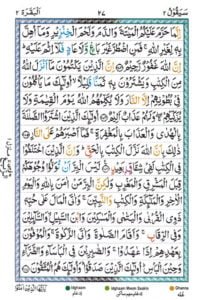 سَيَقُوْلُ ٢ ٢٧ اَلْبَقَرَة ٢
اِنَّمَا حَرَّمَ عَلَيْكُمُ الْمَيْتَةَ وَالدَّمَ وَلَحْمَ الْخِنْزِيْرِ وَمَآ اُهِلَّ
بِهٖ لِغَيْرِ اللّٰهِ ۚ فَمَنِ اضْطُرَّ غَيْرَ بَاغٍ وَّلَا عَادٍ فَلَآ اِثْمَ عَلَيْهِ ؕ
اِنَّ اللّٰهَ غَفُوْرٌ رَّحِيْمٌ اِنَّ الَّذِيْنَ يَكْتُمُوْنَ مَآ اَنْزَلَ اللّٰهُ
مِنَ الْكِتٰبِ وَيَشْتَرُوْنَ بِهٖ ثَمَنًا قَلِيْلًا ۙ اُولٰٓئِكَ مَا يَاْكُلُوْنَ
فِيْ بُطُوْنِهِمْ اِلَّا النَّارَ وَلَا يُكَلِّمُهُمُ اللّٰهُ يَوْمَ الْقِيٰمَةِ وَلَا
يُزَكِّيْهِمْ ۖۚ وَلَهُمْ عَذَابٌ اَلِيْمٌ اُولٰٓئِكَ الَّذِيْنَ اشْتَرَوُا الضَّلٰلَةَ
بِالْهُدٰى وَالْعَذَابَ بِالْمَغْفِرَةِ ۚ فَمَآ اَصْبَرَهُمْ عَلَى النَّارِ
ذٰلِكَ بِاَنَّ اللّٰهَ نَزَّلَ الْكِتٰبَ بِالْحَقِّ ؕ وَاِنَّ الَّذِيْنَ اخْتَلَفُوْا
فِى الْكِتٰبِ لَفِيْ شِقَاقٍۢ بَعِيْدٍ لَيْسَ الْبِرَّ اَنْ تُوَلُّوْا وُجُوْهَكُمْ
قِبَلَ الْمَشْرِقِ وَالْمَغْرِبِ وَلٰكِنَّ الْبِرَّ مَنْ اٰمَنَ بِاللّٰهِ وَالْيَوْمِ
الْاٰخِرِ وَالْمَلٰٓئِكَةِ وَالْكِتٰبِ وَالنَّبِيّٖنَ ۚ وَاٰتَى الْمَالَ عَلٰى حُبِّهٖ
ذَوِى الْقُرْبٰى وَالْيَتٰمٰى وَالْمَسٰكِيْنَ وَابْنَ السَّبِيْلِ ۙ وَالسَّآئِلِيْنَ
وَفِى الرِّقَابِ ۚ وَاَقَامَ الصَّلٰوةَ وَاٰتَى الزَّكٰوةَ ۚ وَالْمُوْفُوْنَ
بِعَهْدِهِمْ اِذَا عٰهَدُوْا ۚ وَالصّٰبِرِيْنَ فِى الْبَاْسَآءِ وَالضَّرَّآءِ
وَحِيْنَ الْبَاْسِ ؕ اُولٰٓئِكَ الَّذِيْنَ صَدَقُوْا ؕ وَاُولٰٓئِكَ هُمُ الْمُتَّقُوْنَ
Idghaam Idghaam Meem Saakin Ghunna